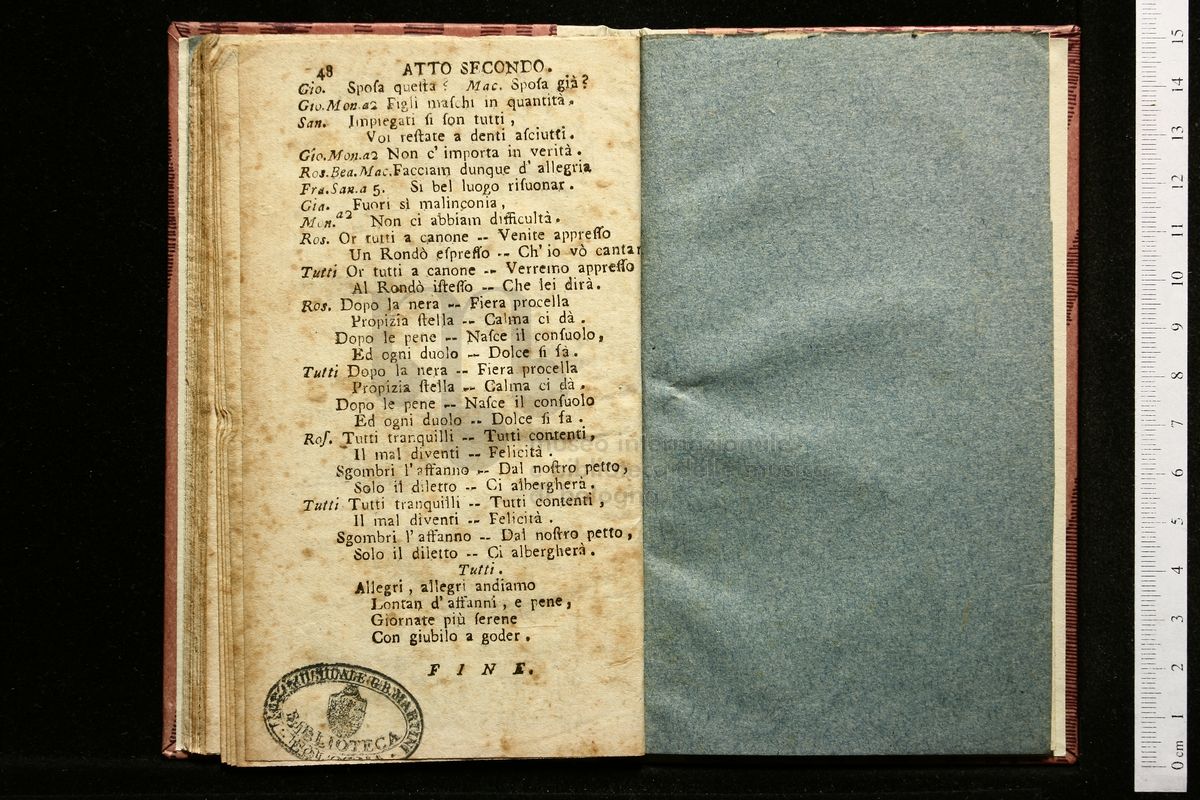 48 ATTO SECONDO.
Gio. Sposa questa? Mac. Sposa già?
Gio.Mon.a2 Figli maschi in quantità.
San. Impiegati si son tutti,
Voi restate a denti asciutti.
Gio.Mon.a2 Non c'importa in verità.
Ros.Bea.Mac.Facciam dunque d'allegria
Fra.San.a 5. Si bel luogo risuonar.
Gia. Fuori sì malinconia,
Mon.a2 Non ci abbiam difficultà.
Ros. Or tutti a canone -- Venite appresso
Un Rondò espresso -- Ch'io vò cantar
Tutti Or tutti a canone -- Verremo appresso
Al Rondò istesso -- Che lei dirà.
Ros. Dopo la nera -- Fiera procella
Propizia stella -- Calma ci dà.
Dopo le pene -- Nasce il consuolo,
Ed ogni duolo -- Dolce si fà.
Tutti Dopo la nera -- Fiera procella
Propizia stella -- Calma ci dà.
Dopo le pene -- Nasce il consuolo
Ed ogni duolo -- Dolce si fa.
Ros. Tutti tranquilli -- Tutti contenti,
Il mal diventi -- Felicità.
Sgombri l'affanno -- Dal nostro petto,
Solo il diletto -- Ci albergherà.
Tutti Tutti tranquilli -- Tutti contenti,
Il mal diventi -- Felicità.
Sgombri l'affanno -- Dal nostro petto,
Solo il diletto -- Ci albergherà.
Tutti.
Allegri, allegri andiamo
Lontan d'affanni, e pene,
Giornate più serene
Con giubilo a goder.
FINE.
G.B. MARTINI
BIBLIOTECA
museo internazionale
0 cm 1 2 3 4 5 6 7 8 9 10 11 12 13 14 15